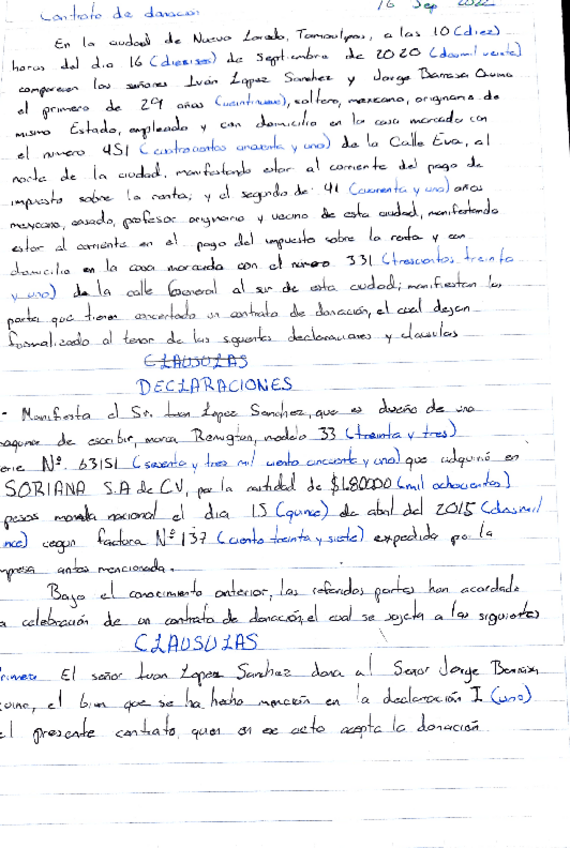 Contrato de donacion 16 Sep 2022
En la ciudad de Nuevo Laredo, Tamaulipas, a las 10 (diez)
horas del dia 16 (dieciseis) de Septiembre de 2020 (dosmil veinte)
comparecen los señores Iván Lopez Sanchez y Jorge Barraza
el primero de 29 años, soltero, mexicano, originario de
mismo Estado, empleado y con domicilio en la casa marcada con
el numero 451 (cuatrocientos cincuenta y uno) de la Calle Eva, al
norte de la ciudad, manifestando estar al corriente del pago de
impuesto sobre la renta; y el segundo de 41 (cuarenta y uno) años
mexicano, casado, profesor originario y vecino de esta ciudad, manifestando
estar al corriente en el pago del impuesto sobre la renta y con
domicilio en la casa marcada con el numero 331 (trescientos treinta
y uno) de la calle General al sur de esta ciudad; manifiestan las
partes que tienen concertado un contrato de donación, el cual dejan
formalizado al tenor de las siguientes declaraciones y clausulas
CLAUSULAS
DECLARACIONES
- Manifiesta el Sr. Ivan Lopez Sanchez, que es dueño de una
maquina de escribir, marca Remington, modelo 33 (treinta y tres)
erie Nº. 63151 (sesenta y tres mil ciento cincuenta y uno) que adquirió en
SORIANA S.A de CV, por la cantidad de $1,800.00 (mil ochocientos)
pesos moneda nacional el dia 15 (quince) de abril del 2015 (dosmil
nce) segun factura Nº 137 (ciento treinta y siete) expedida por la
mpresa antes mencionada.
Bajo el conocimiento anterior, las referidas partes han acordado
a celebración de un contrato de donación, el cual se sujeta a las siguientes
CLAUSULAS
rimera El señor Ivan Lopez Sanchez dona al Señor Jorge Barraza
el bien que se ha hecho mención en la declaración I (uno)
el presente contrato, quien en ese acto acepta la donación.